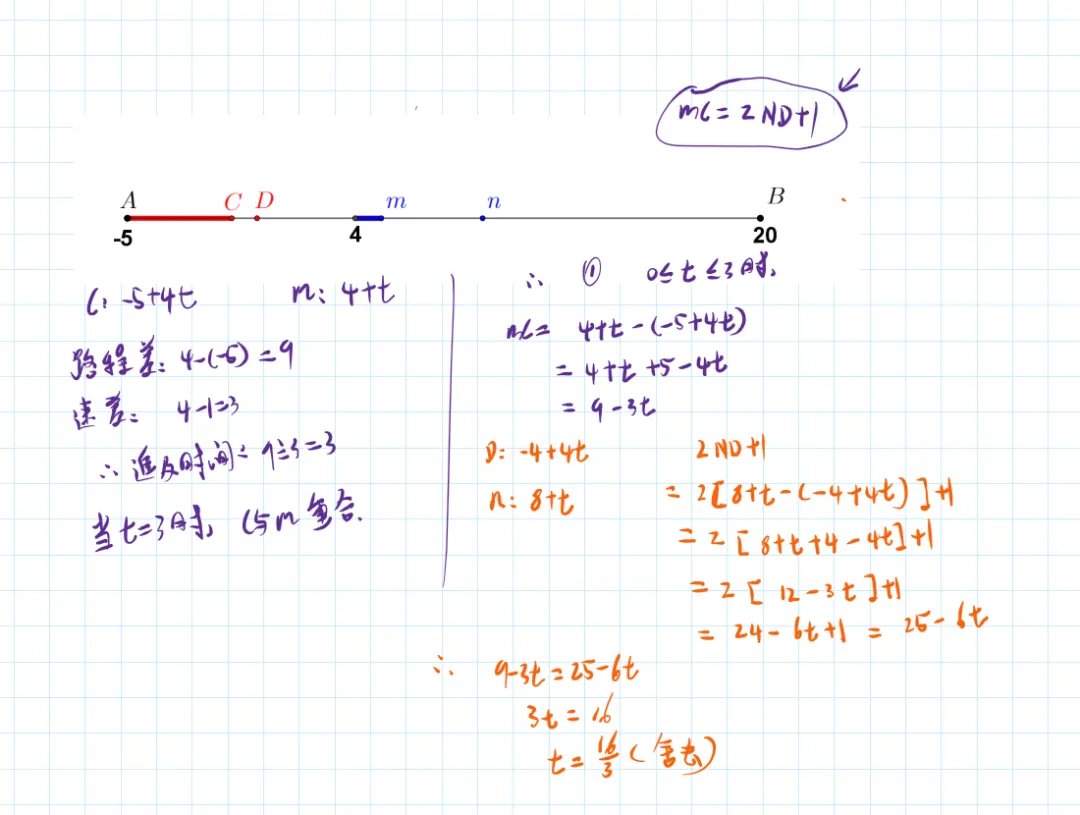 mC = 2ND+1
A C D m n B
-5 4 20
C: -5+4t m: 4+t
路程差: 4-(-5)=9
速差: 4-1=3
∴ 追及时间: 9÷3=3
当t=3时, C与m重合.
∴ ① 0≤t≤3时,
mC= 4+t-(-5+4t)
= 4+t+5-4t
= 9-3t
D: -4+4t
n: 8+t
2ND+1
= 2[8+t-(-4+4t)]+1
= 2[8+t+4-4t]+1
= 2[12-3t]+1
= 24-6t+1 = 25-6t
∴ 9-3t=25-6t
3t=16
t=16/3 (舍去)